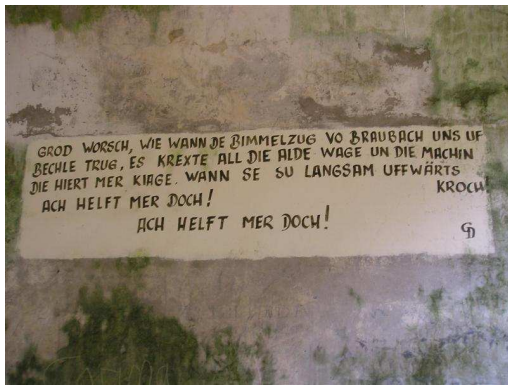 GROD WORSCH, WIE WANN DE BIMMELZUG VO BRAUBACH UNS UF
BECHLE TRUG, ES KREXTE ALL DIE ALDE WAGE UN DIE MACHIN
DIE HIERT MER KIAGE. WANN SE SU LANGSAM UFFWÄRTS
KROCH
ACH HELFT MER DOCH!
ACH HELFT MER DOCH!
GD